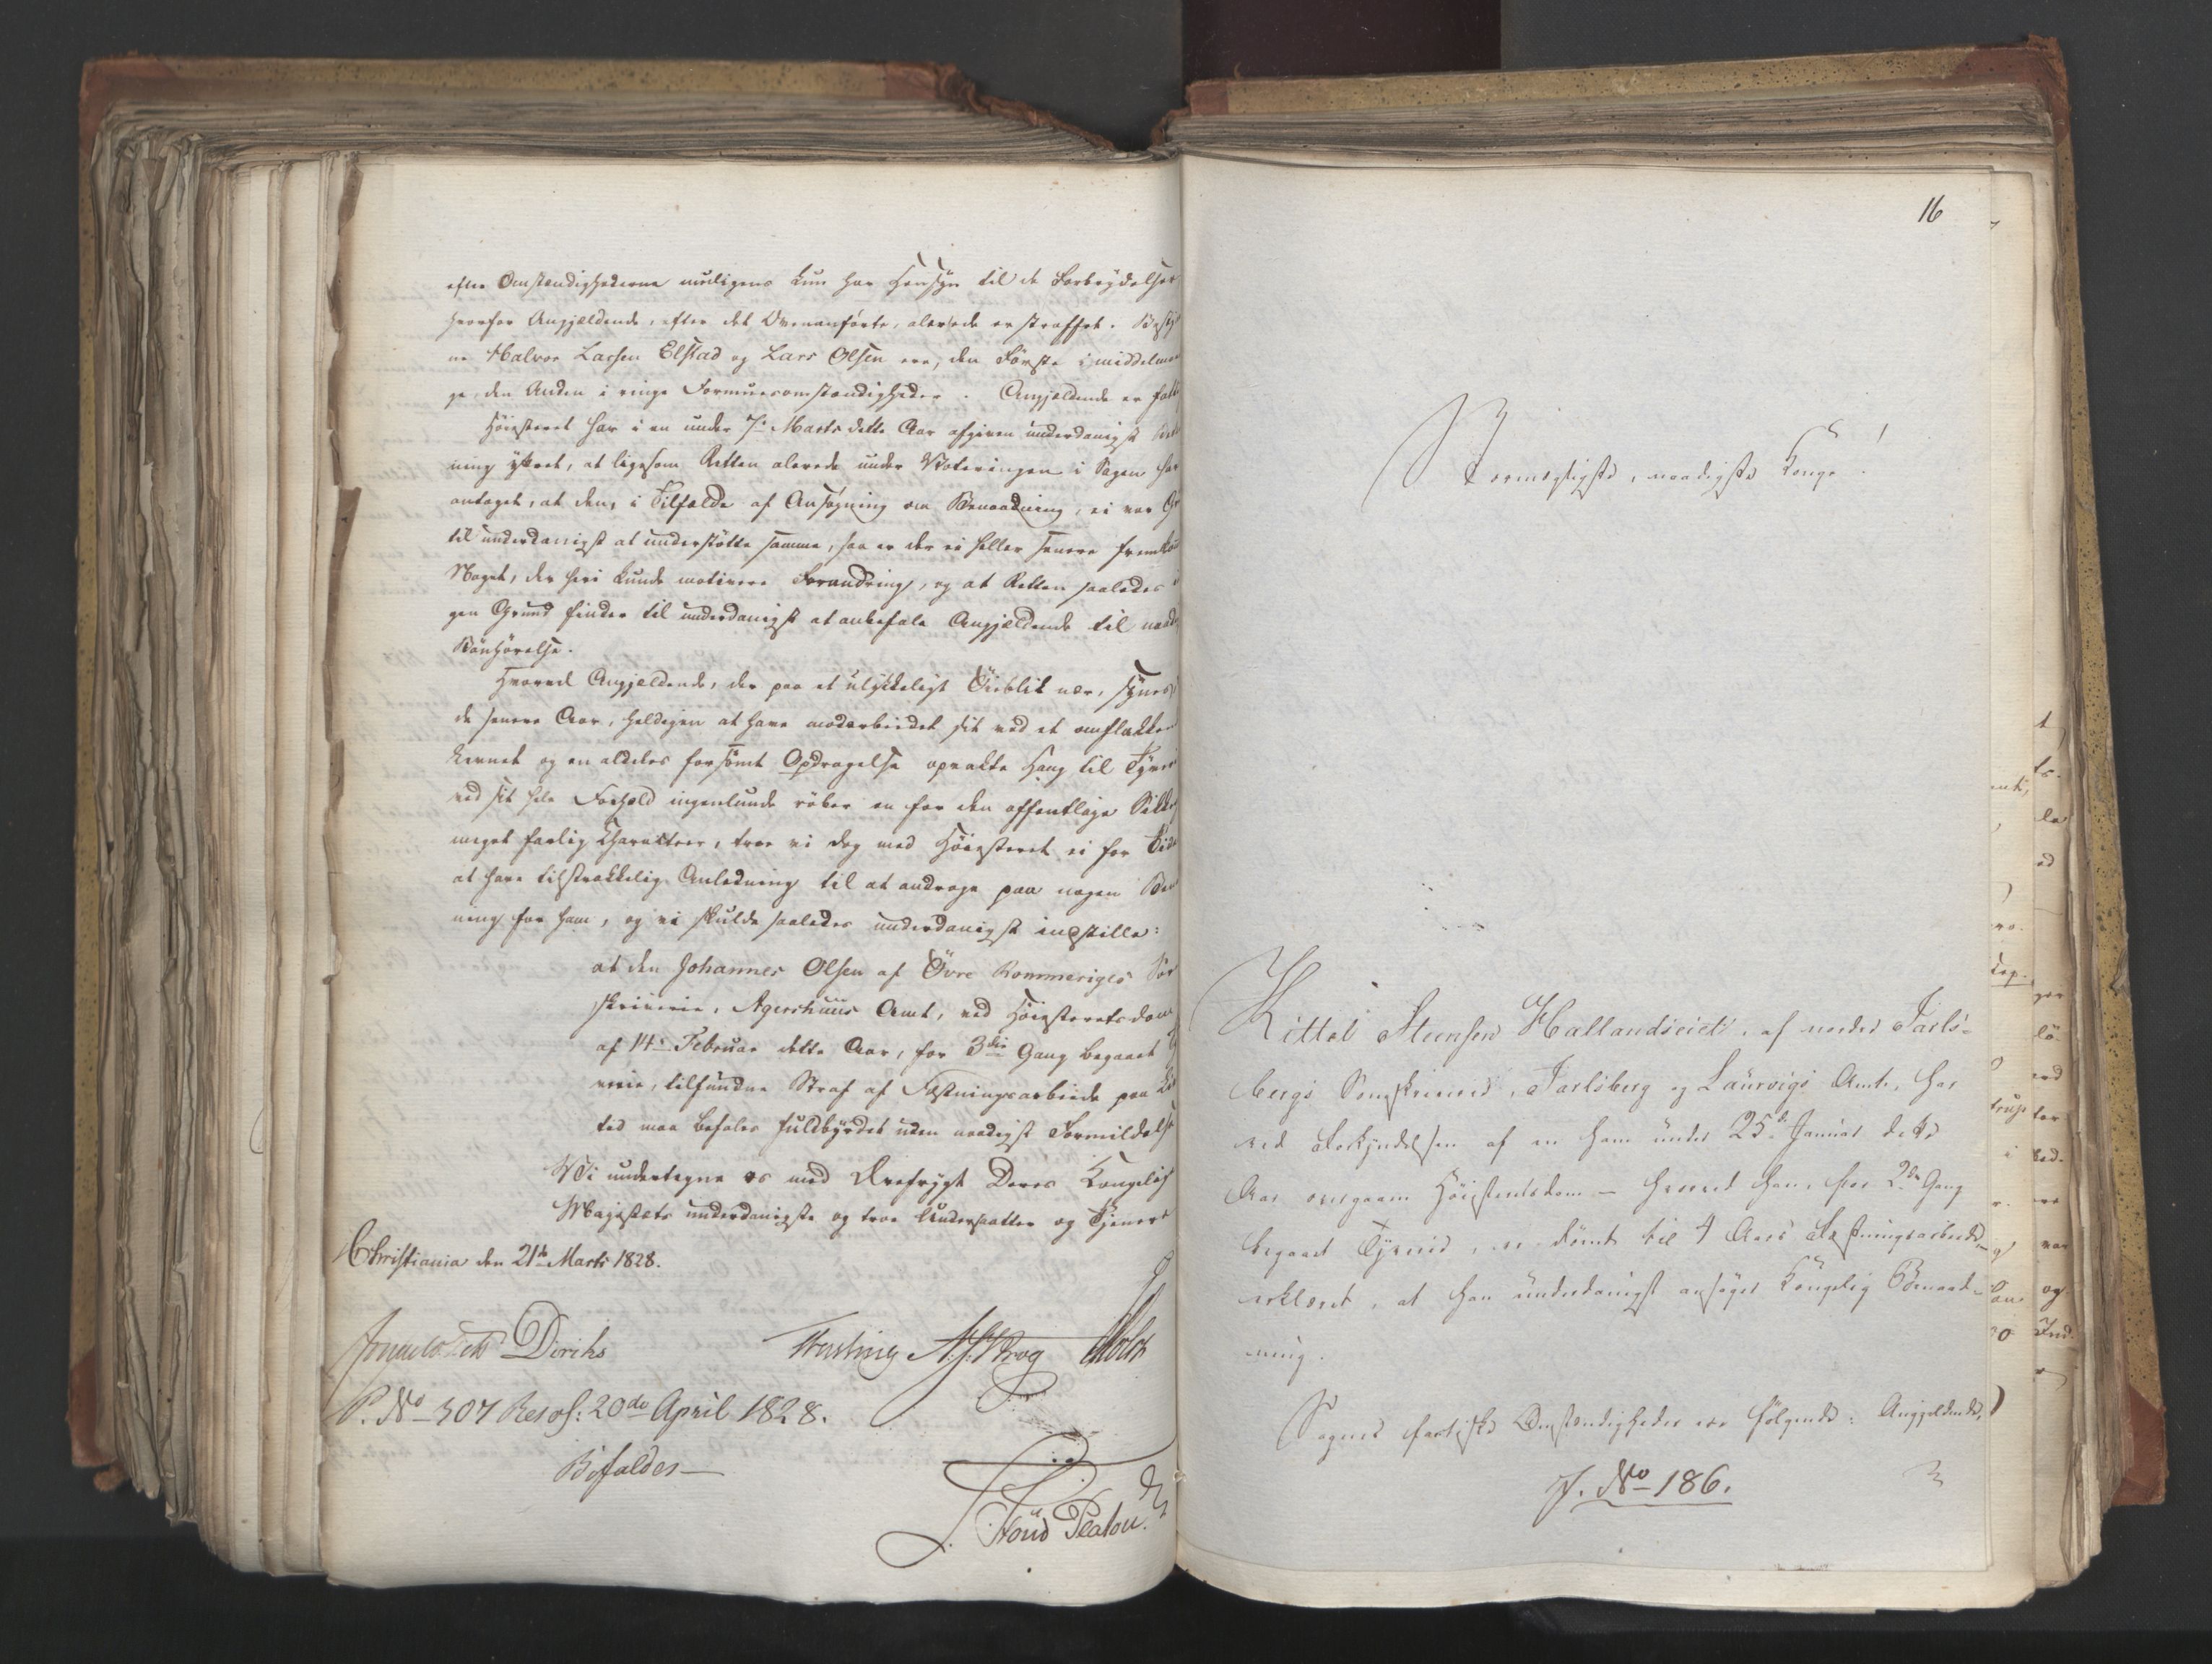 efter Omstændighederne muligens kun har Hensyn til de Forbrydelser
hvorfor Angjældende, efter det Ovenanførte, allerede er straffet.
ne Halvor Larsen Elstad og Lars Olsen ere, den Første i middelmaa
ge, den Anden i ringe Formuesomstændigheder. Angjældende er fatt
Høiesteret har i en under 7de Marts dette Aar afgiven underdanigst
ning yttret, at ligesom Retten allerede under Voteringen i Sagen har
antaget, at den, i Tilfælde af Ansøgning om Benaadning, ei var Gr
til underdanigst at understøtte samme, saa er der ei heller senere fremkom
Noget, der heri kunde motivere Forandring, og at Retten saaledes i
gen Grund finder til underdanigst at anbefale Angjældende til naadi
Bønhørelse.
Hvorvel Angjældende, der paa et ulykkeligt Øieblik nær, synes i
de senere Aar, heldigen at have modarbeidet sit ved et omflakken
Levnet og en aldeles forsømt Opdragelse opvakte Hang til Tyveri
ved sit hele Forhold ingenlunde røber en for den offentlige Sikker
meget farlig Charakteer, troe vi dog med Høiesteret ei for Tide
at have tilstrækkelig Anledning til at andrage paa nogen Bena
ning for ham, og vi skulde saaledes underdanigst indstille:
at den Johannes Olsen af Övre Rommeriges Sor
skriverie, Agershuus Amt, ved Høiesteretsdom
af 14de Februar dette Aar, for 3die Gang begaaet Ty
verie, tilfundne Straf af Fæstningsarbeide paa Liv
tid maa befales fuldbyrdet uden naadigst Formildelse
Vi undertegne os med Ærefrygt Deres Kongelig
Majestæts underdanigste og troe Undersaatter og Tjenere
Christiania den 21de Marts 1828.
Diriks
A. J. Krog
P. No 307 Resol: 20de April 1828.
Bifaldes
16
Stormægtigste, naadigste Konge!
Kittel Steensen Hallandseiet, af nordre Jarls-
bergs Sorenskriverie, Jarlsberg og Laurvigs Amt, har
ved Forkyndelsen af en ham under 25de Januar dette
Aar overgaaen Høiesteretsdom – hvorved han, for 2den Gang
begaaet Tyverie, er dømt til 4 Aars Fæstningsarbeide,
erklæret, at han underdanigst ansøger Kongelig Benaad-
ning.
Sagens factiske Omstændigheder ere følgende: Angjældende,
J. No 186.